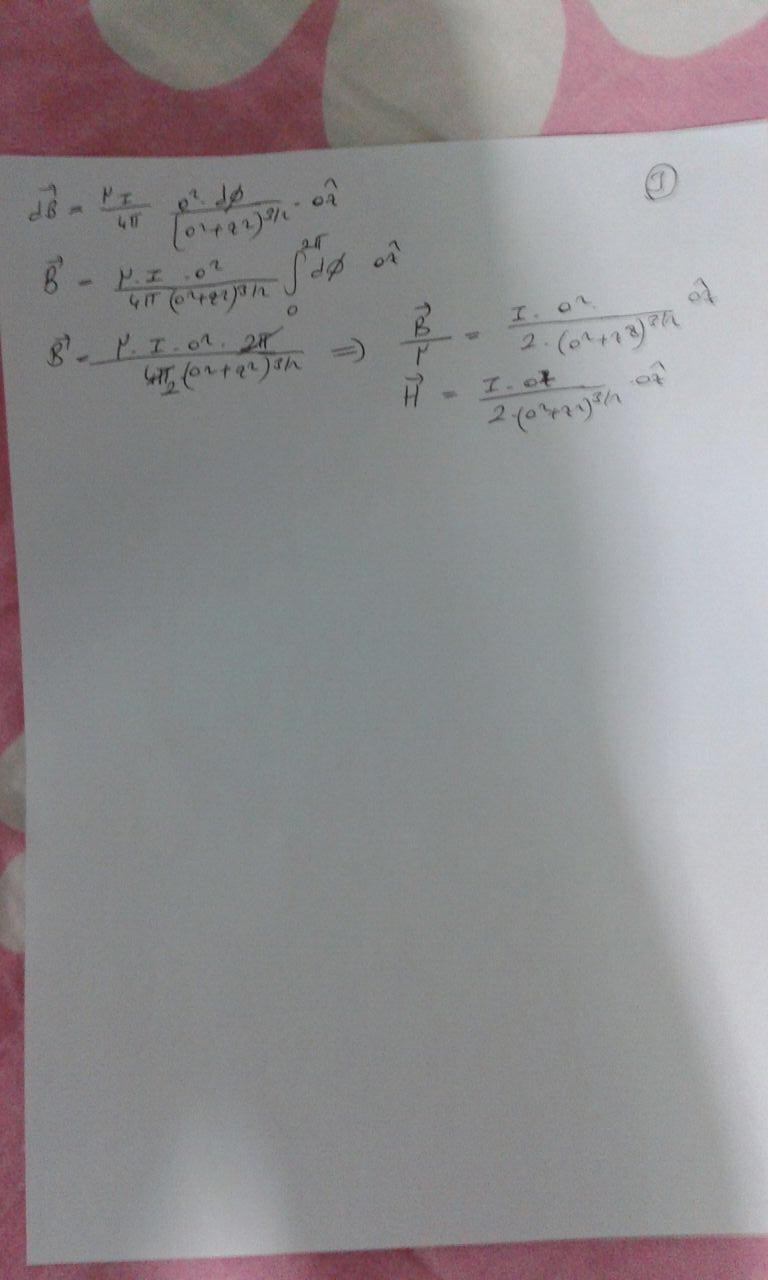 I
dB⃗ = μI/4π a². dφ/[a²+z²)^3/2 . aẑ
B⃗ = μ.I .a²/4π(a²+z²)^3/2 ∫₀^2π dφ aẑ
B⃗ = μ.I.a².2π/4π₂(a²+z²)^3/2 ⇒ B⃗/μ = I.a²/2.(a²+z²)^3/2 aẑ
H⃗ = I.a²/2.(a²+z²)^3/2 .aẑ